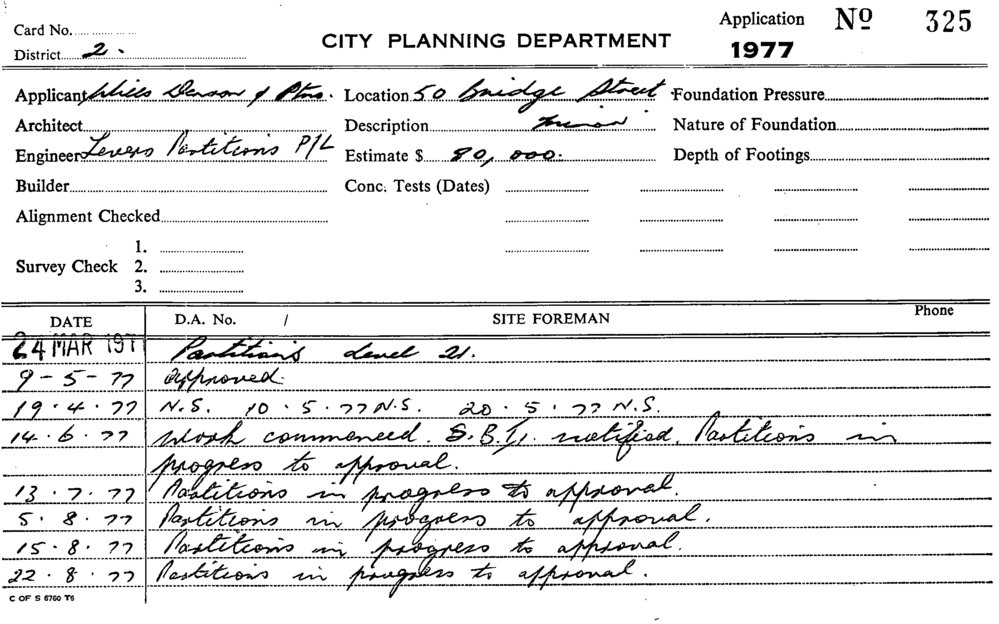 Card No.
District 2.
CITY PLANNING DEPARTMENT
Application No 325
1977
Applicant Wills Denson & Ptns. Location 50 Bridge Street Foundation Pressure
Architect Description minor Nature of Foundation
Engineer Levers Partitions P/L Estimate $ 80,000. Depth of Footings
Builder Conc. Tests (Dates)
Alignment Checked
Survey Check 1.
2.
3.
DATE D.A. No. / SITE FOREMAN Phone
24 MAR 197 Partitions Level 21.
9-5-77 Approved.
19.4.77 N.S. 10.5.77 N.S. 20.5.77 N.S.
14.6.77 Work commenced. notified. Partitions in
progress to approval.
13.7.77 Partitions in progress to approval.
5.8.77 Partitions in progress to approval.
15.8.77 Partitions in progress to approval.
22.8.77 Partitions in progress to approval.
C OF S 6760 T6